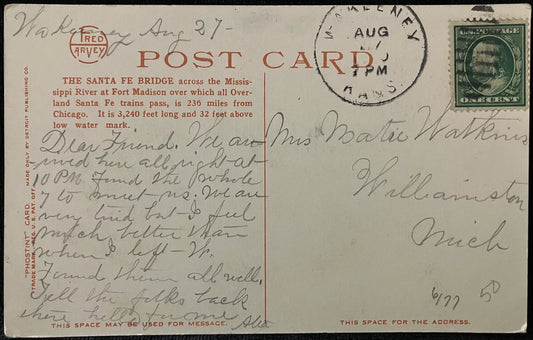 Wakeeney Aug 27-
FRED
HARVEY
POST CARD
WAKEENEY
AUG
7 PM
KANS.
U.S. POSTAGE
ONE CENT
THE SANTA FE BRIDGE across the Missis-
sippi River at Fort Madison over which all Over-
land Santa Fe trains pass, is 236 miles from
Chicago. It is 3,240 feet long and 32 feet above
low water mark.
Dear Friend. We ar-
rived here all right at
10 PM. Found the whole
7 to meet us. We are
very tired but I feel
much better than
when I left - W.
Found them all well.
Tell the folks back
there hello for me
Mrs Watkins
Williamston
Mich
6/77
"PHOSTINT" CARD
MADE ONLY BY DETROIT PUBLISHING CO.
TRADE MARK REG. U.S. PAT. OFF.
THIS SPACE MAY BE USED FOR MESSAGE.
THIS SPACE FOR THE ADDRESS.